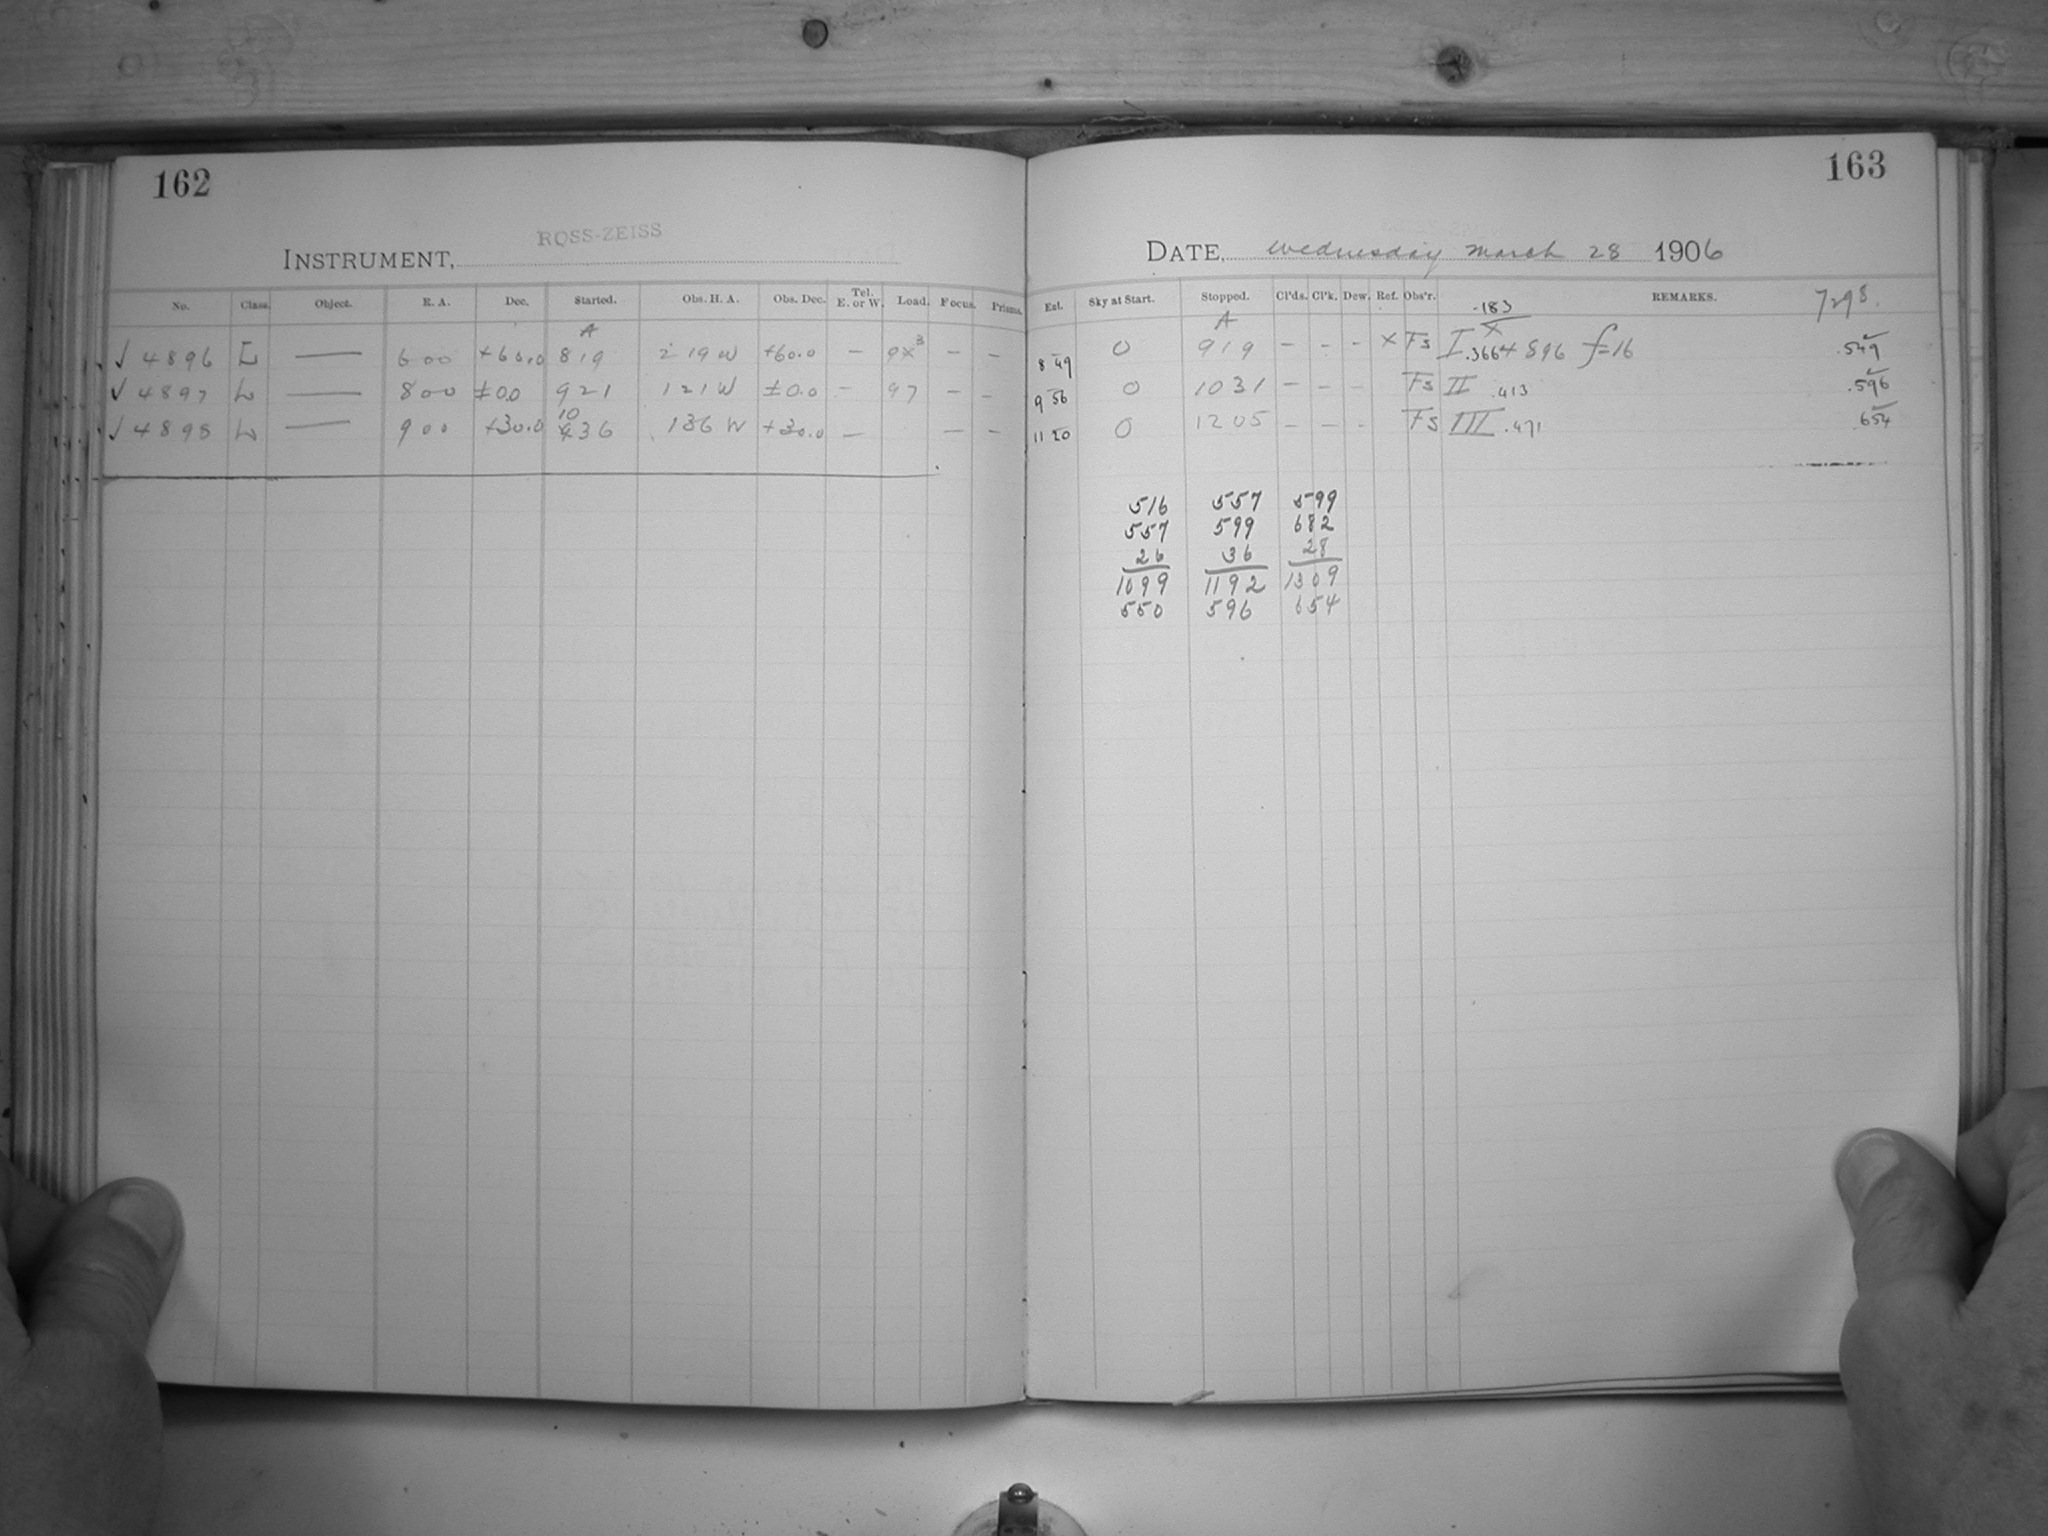 162
163
ROSS-ZEISS
INSTRUMENT,
DATE, Wednesday March 28 1906
No. Class. Object. R. A. Dec. Started. Obs. H. A. Obs. Dec. Tel. E. or W. Load. Focus. Prisms. Ext. Sky at Start. Stopped. Cl'ds. Cl'k. Dew. Ref. Obs'r. REMARKS. 7298.
.183
A A X
√ 4896 L — 6 00 +60.0 819 2 19 W +60.0 — 3 – – 8 49 0 919 – – – X Fs I .366 4896 f=16 .549
√ 4897 L — 8 00 ±0.0 921 1 21 W ±0.0 – 97 – – 9 56 0 1031 – – – Fs II .413 .596
√ 4898 L — 9 00 +30.0 10 36 136 W +30.0 — – – 11 20 0 1205 – – – Fs III .471 .654
516 557 599
557 599 682
26 36 28
1099 1192 1309
550 596 654